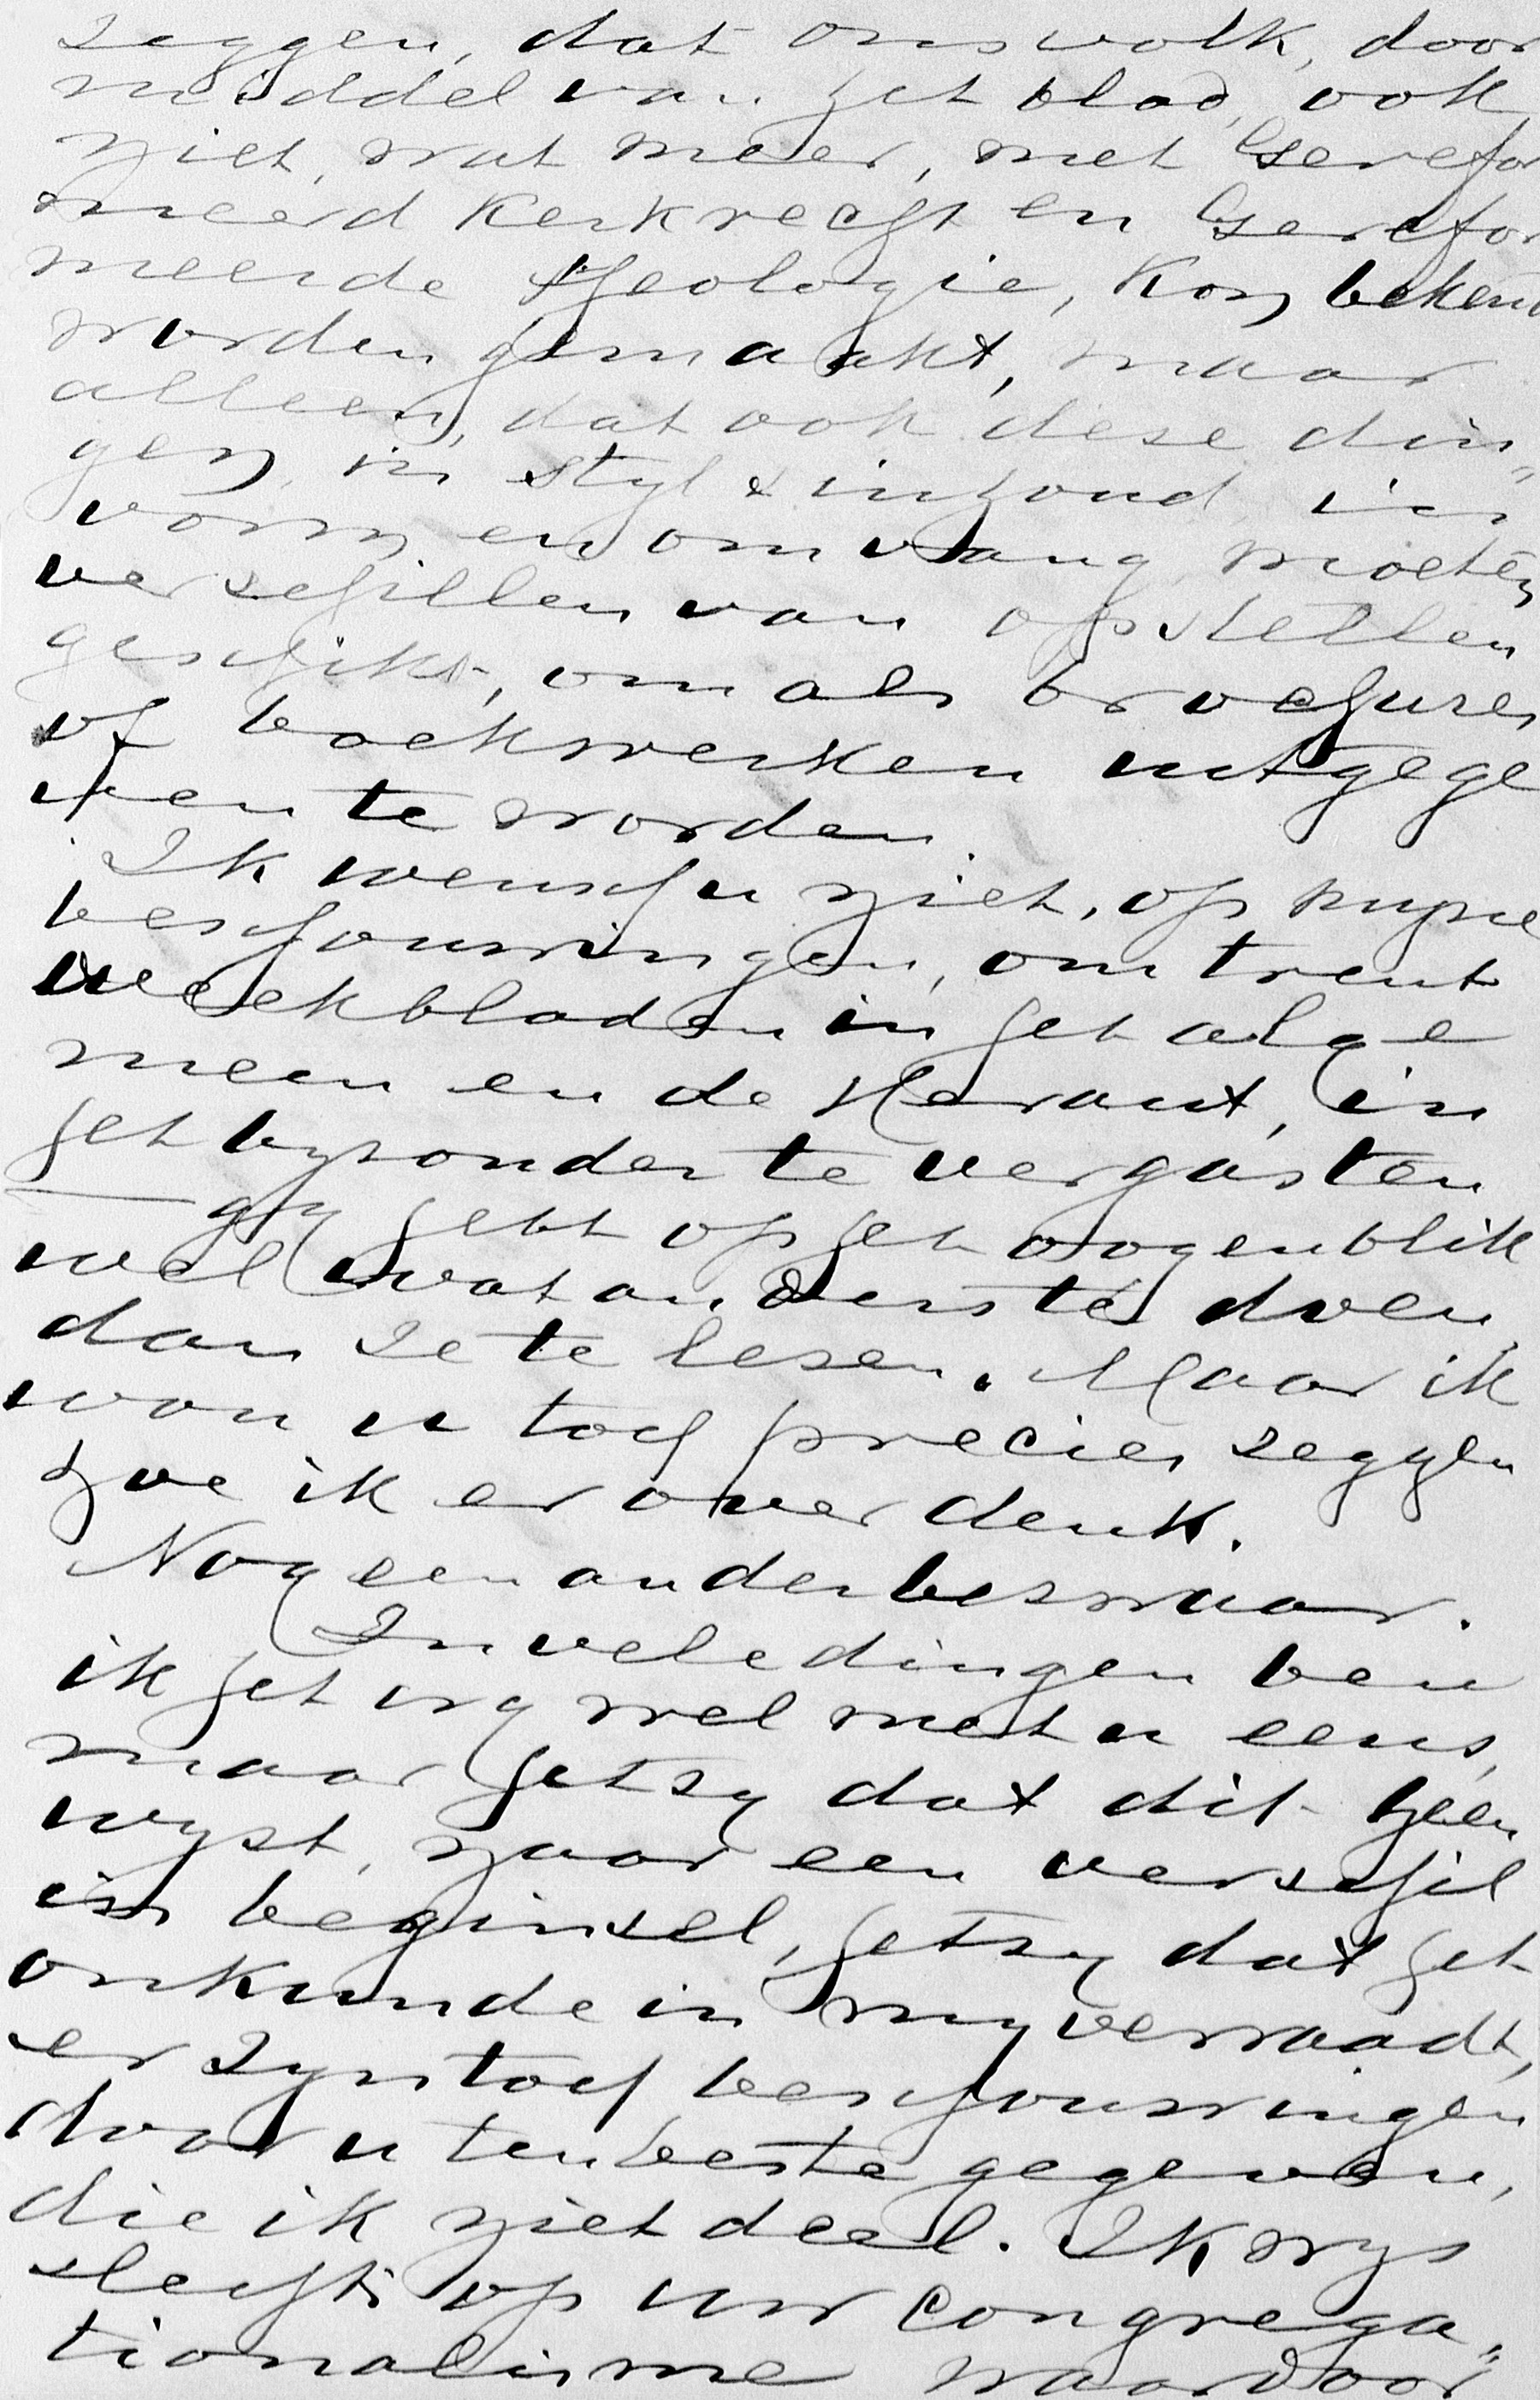 zeggen, dat ons volk, door
middel van het blad, ook
niet, wat meer, met Gerefor
meerd Kerkrecht en Gerefor
meerde theologie, kon bekend
worden gemaakt, maar
alleen, dat ook deze din„
gen, in styl & inhoud, in
vorm en omvang moeten
verschillen van opstellen
geschikt, om als brochures
of boekwerken uitgege
ven te worden.
Ik wensch u niet, op myne
beschouwingen, omtrent
weekbladen in het alge
meen en de Heraut, in
het byzonder te vergasten
gy hebt op het oogenblik
wel wat anders te doen
dan ze te lezen. Maar ik
wou u toch precies zeggen
hoe ik er over denk.
Nog een ander bezwaar.
In vele dingen ben
ik het nog wel met u eens,
maar hetzy dat dit heen
wyst, naar een verschil
in beginsel, hetzy dat het
onkunde in my verraadt,
er zyn toch beschouwingen
door u ten beste gegeven,
die ik niet deel. Ik wys
slechts op uw congrega„
tionalisme waardoor